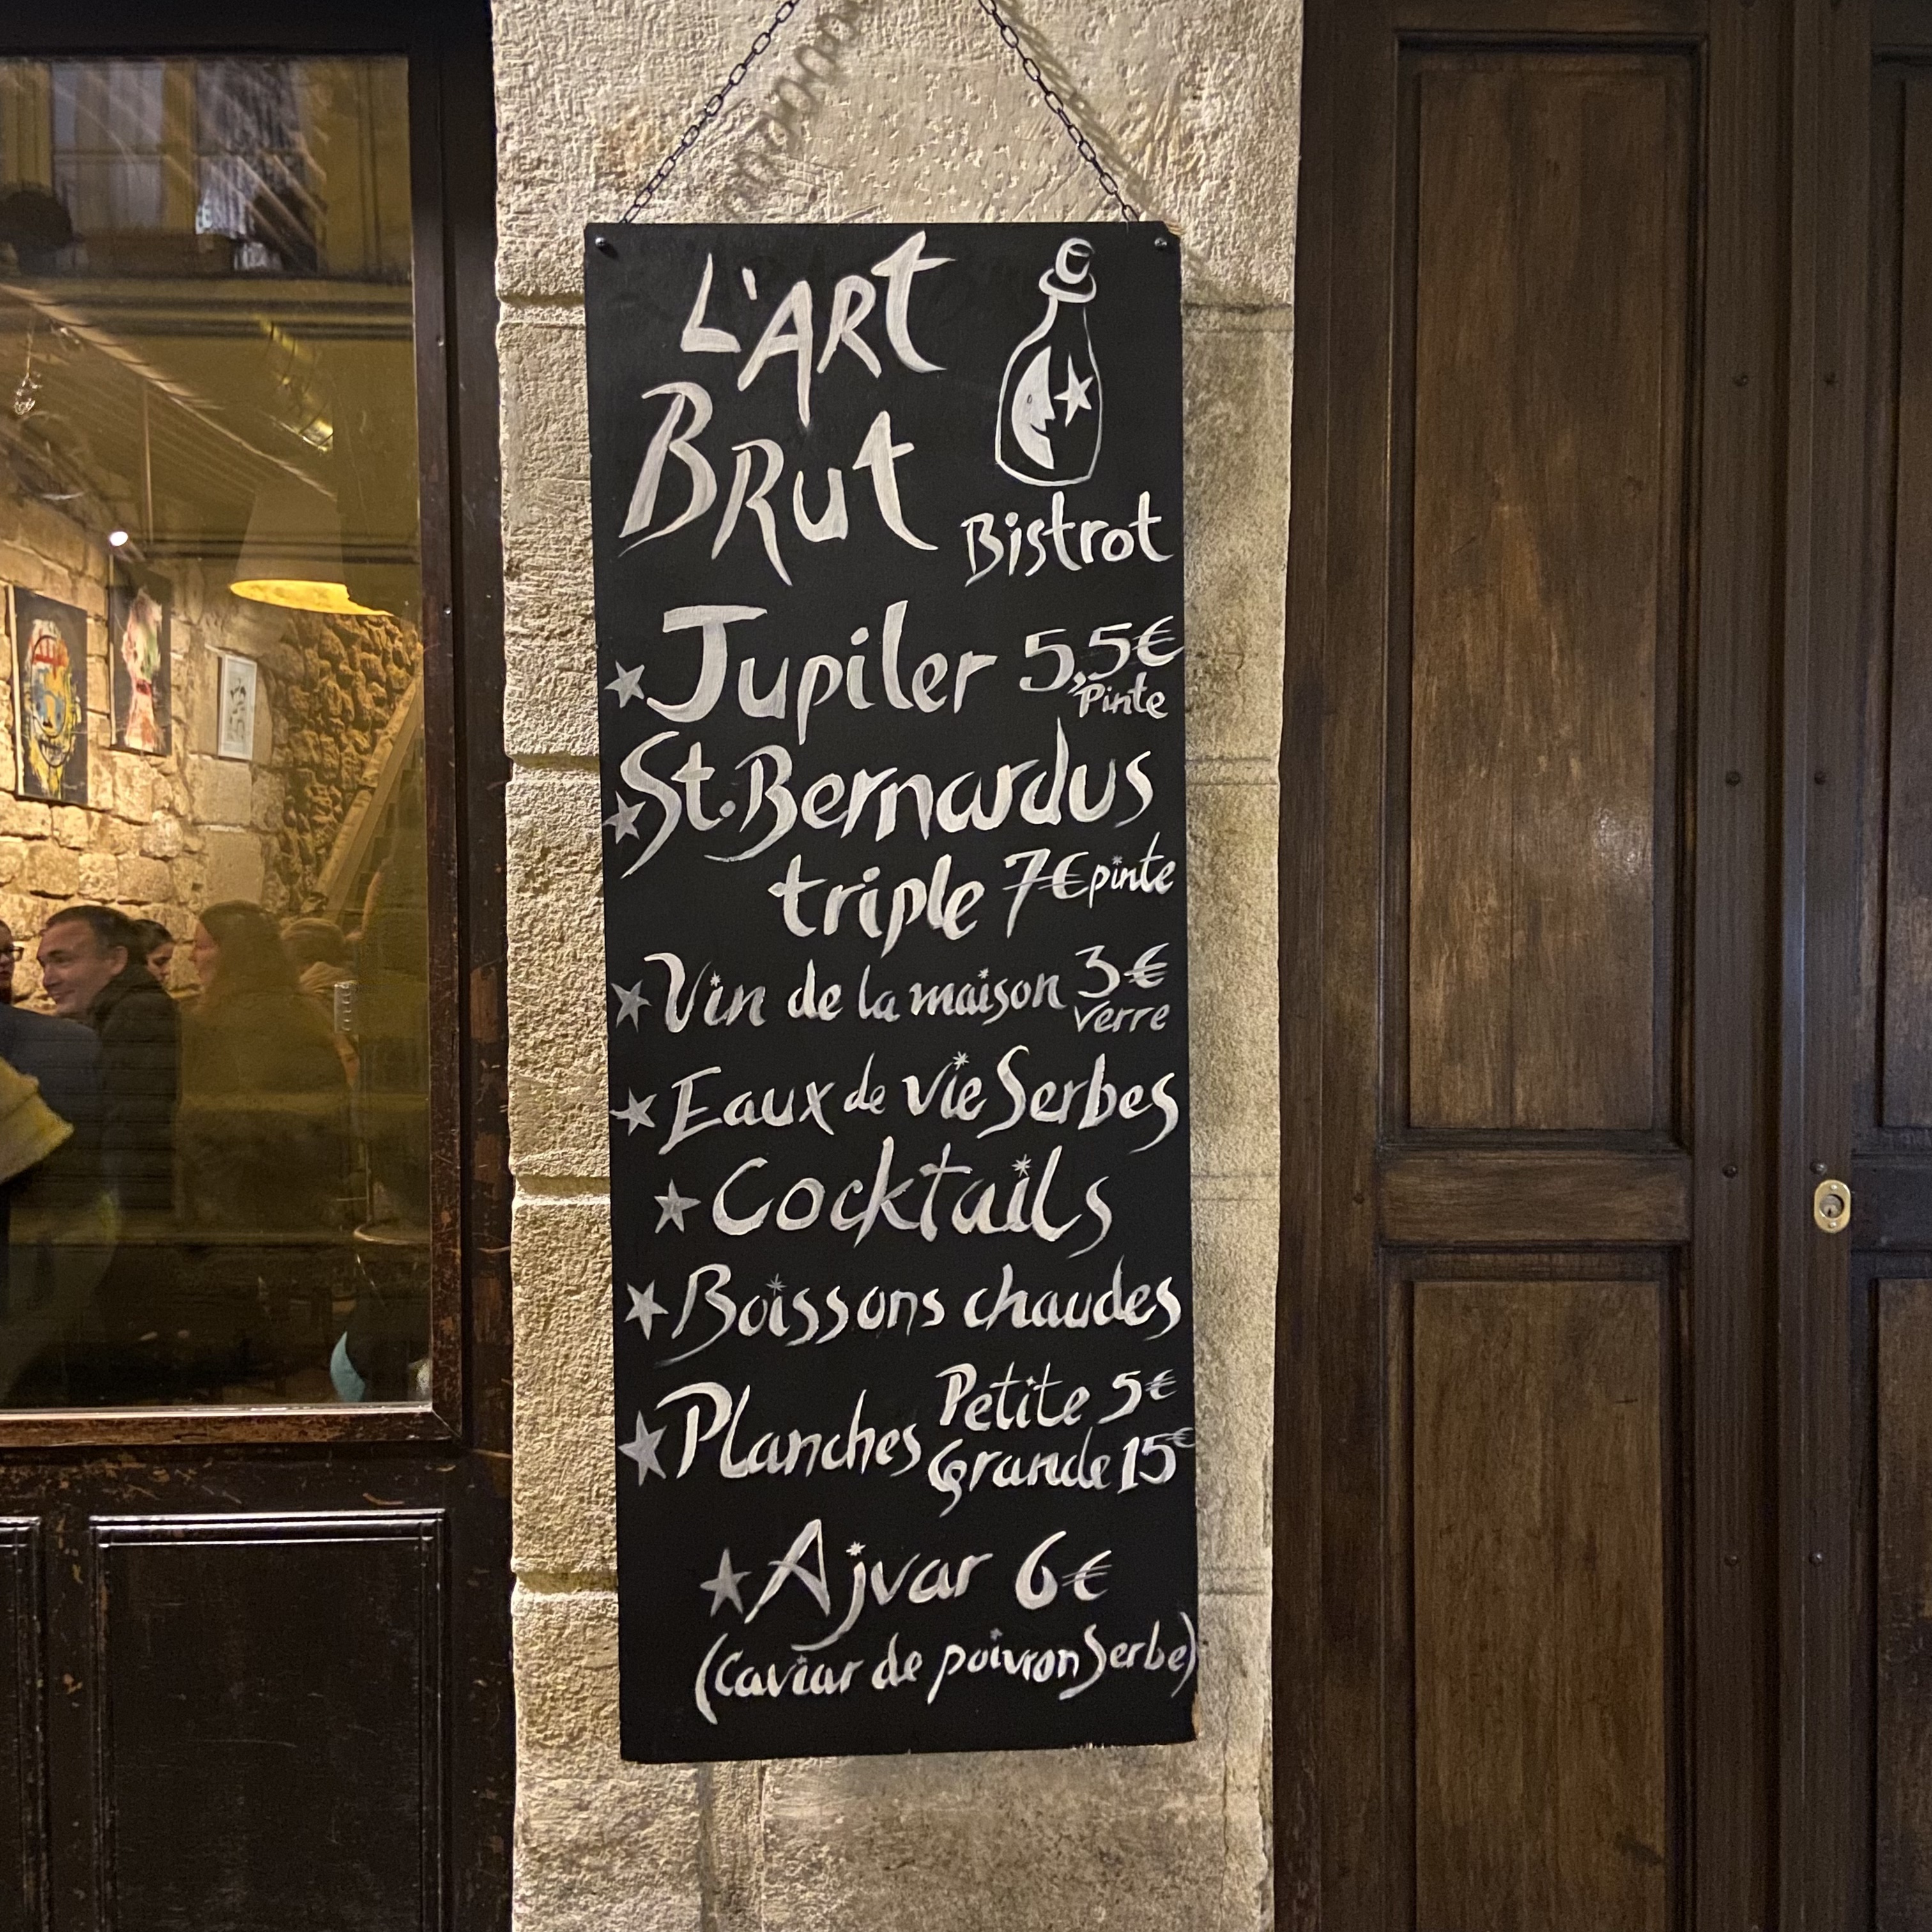 L'ART
BRUT
Bistrot
Jupiler 5,5€
Pinte
St.Bernardus
triple 7€ pinte
Vin de la maison 3€
verre
Eaux de vie Serbes
Cocktails
Boissons chaudes
Planches Petite 5€
Grande 15€
Ajvar 6€
(Caviar de poivron Serbe)